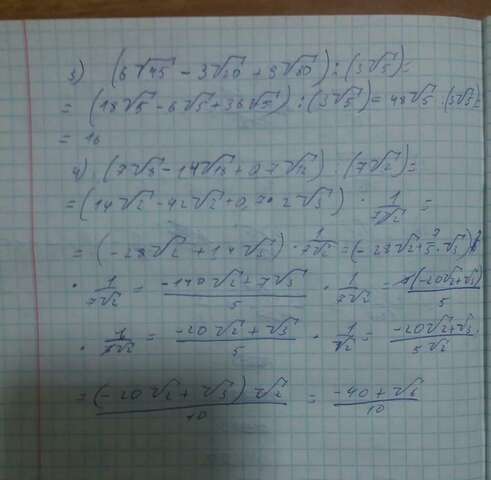 3) (6√45 - 3√20 + 9√80) : (3√5) =
= (18√5 - 6√5 + 36√5) : (3√5) = 48√5 : (3√5) =
= 16
4) (7√8 - 14√18 + 0,7√12) : (7√2) =
= (14√2 - 42√2 + 0,7 • 2√3) · 1/7√2 =
= (-28√2 + 1,4√3) · 1/7√2 = (-28√2 + 7/5 · √3)
· 1/7√2 = -140√2 + 7√3/5 · 1/7√2 = (-20√2 + √3)/5
· 1/√2 = -20√2 + √3/5 · 1/√2 = -20√2 + √3/5√2
= (-20√2 + √3)√2/10 = -40 + √6/10